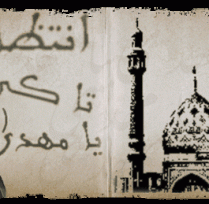 انتظار
تا کی
یا مهدی